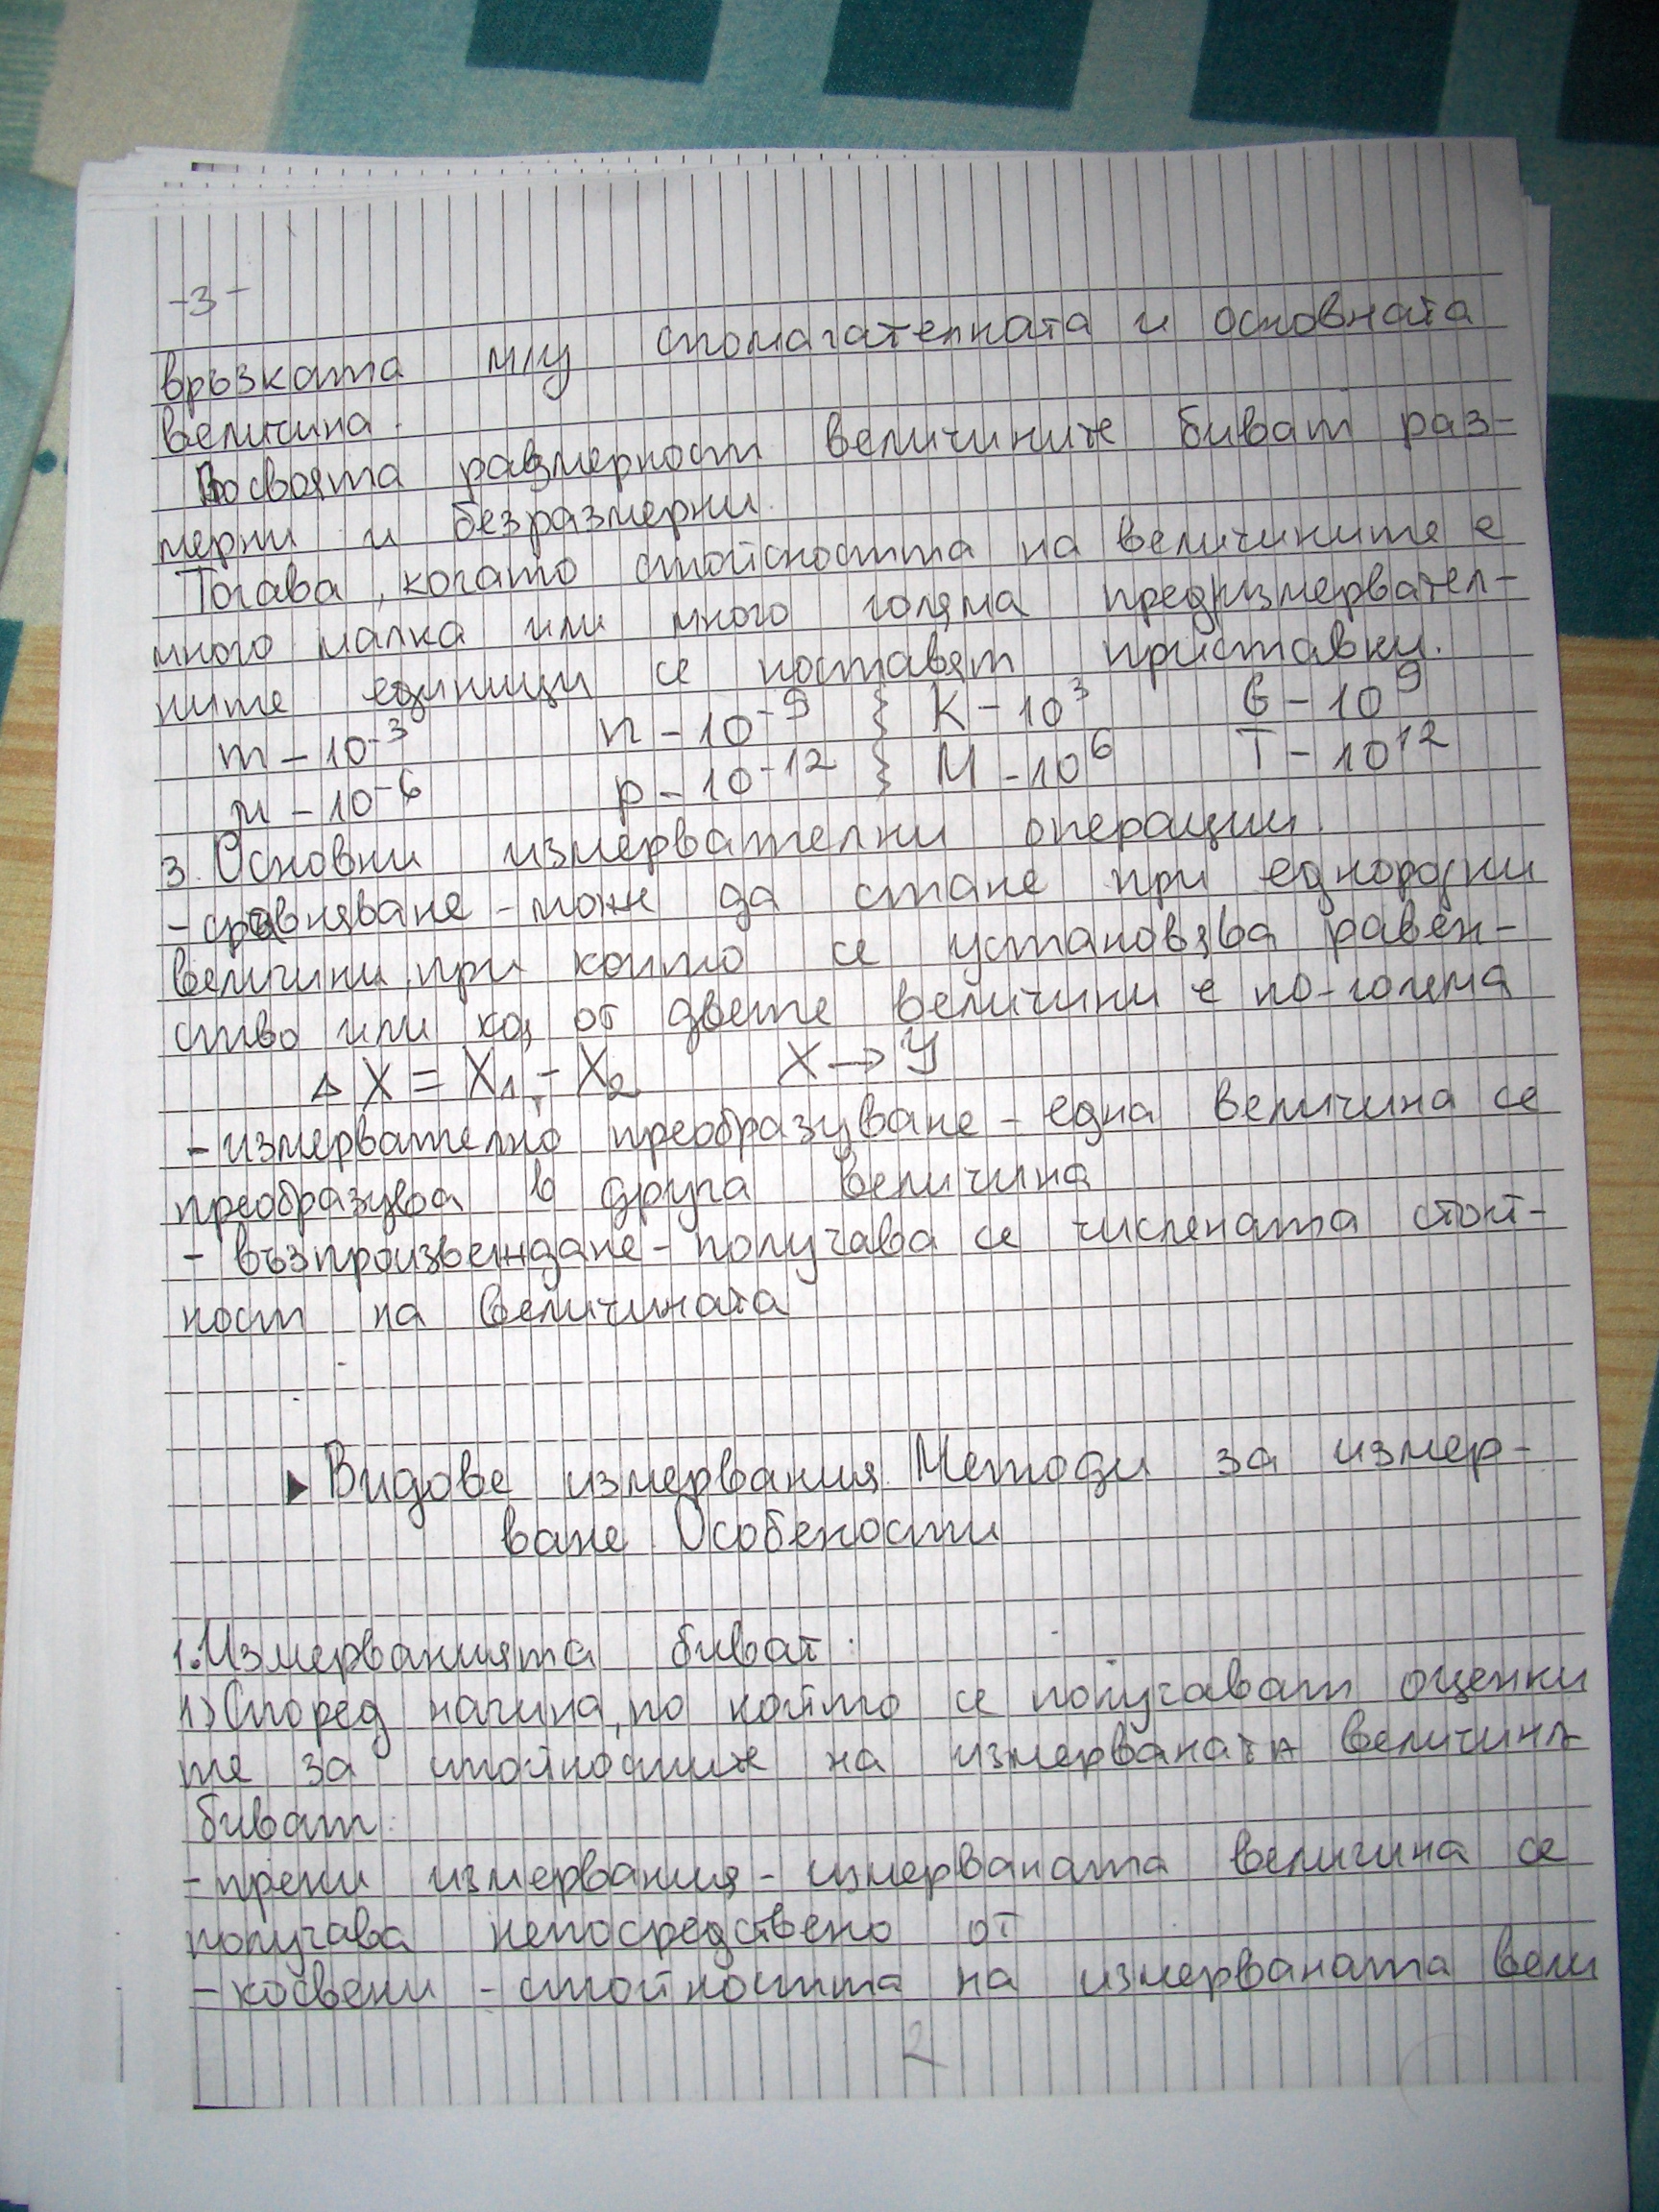 -3-
връзката м/у спомагателната и основната
величина.
По своята размерност величините биват раз-
мерни и безразмерни.
Тогава, когато стойността на величините е
много малка или много голяма пред измервател-
ните единици се поставят приставки.
m - 10⁻³ n - 10⁻⁹ } K - 10³ G - 10⁹
μ - 10⁻⁶ p - 10⁻¹² } M - 10⁶ T - 10¹²
3. Основни измервателни операции.
- сравняване - може да стане при еднородни
величини, при които се установява равен-
ство или коя от двете величини е по-голяма
Δ X = X₁ - X₂ X → Y
- измервателно преобразуване - една величина се
преобразува в друга величина
- възпроизвеждане - получава се числената стой-
ност на величината
▶ Видове измервания. Методи за измер-
ване. Особености
1. Измерванията биват:
1) Според начина, по който се получават оценки
те за стойностите на измерваната величина
биват:
- преки измервания - измерваната величина се
получава непосредствено от
- косвени - стойността на измерваната вели
2